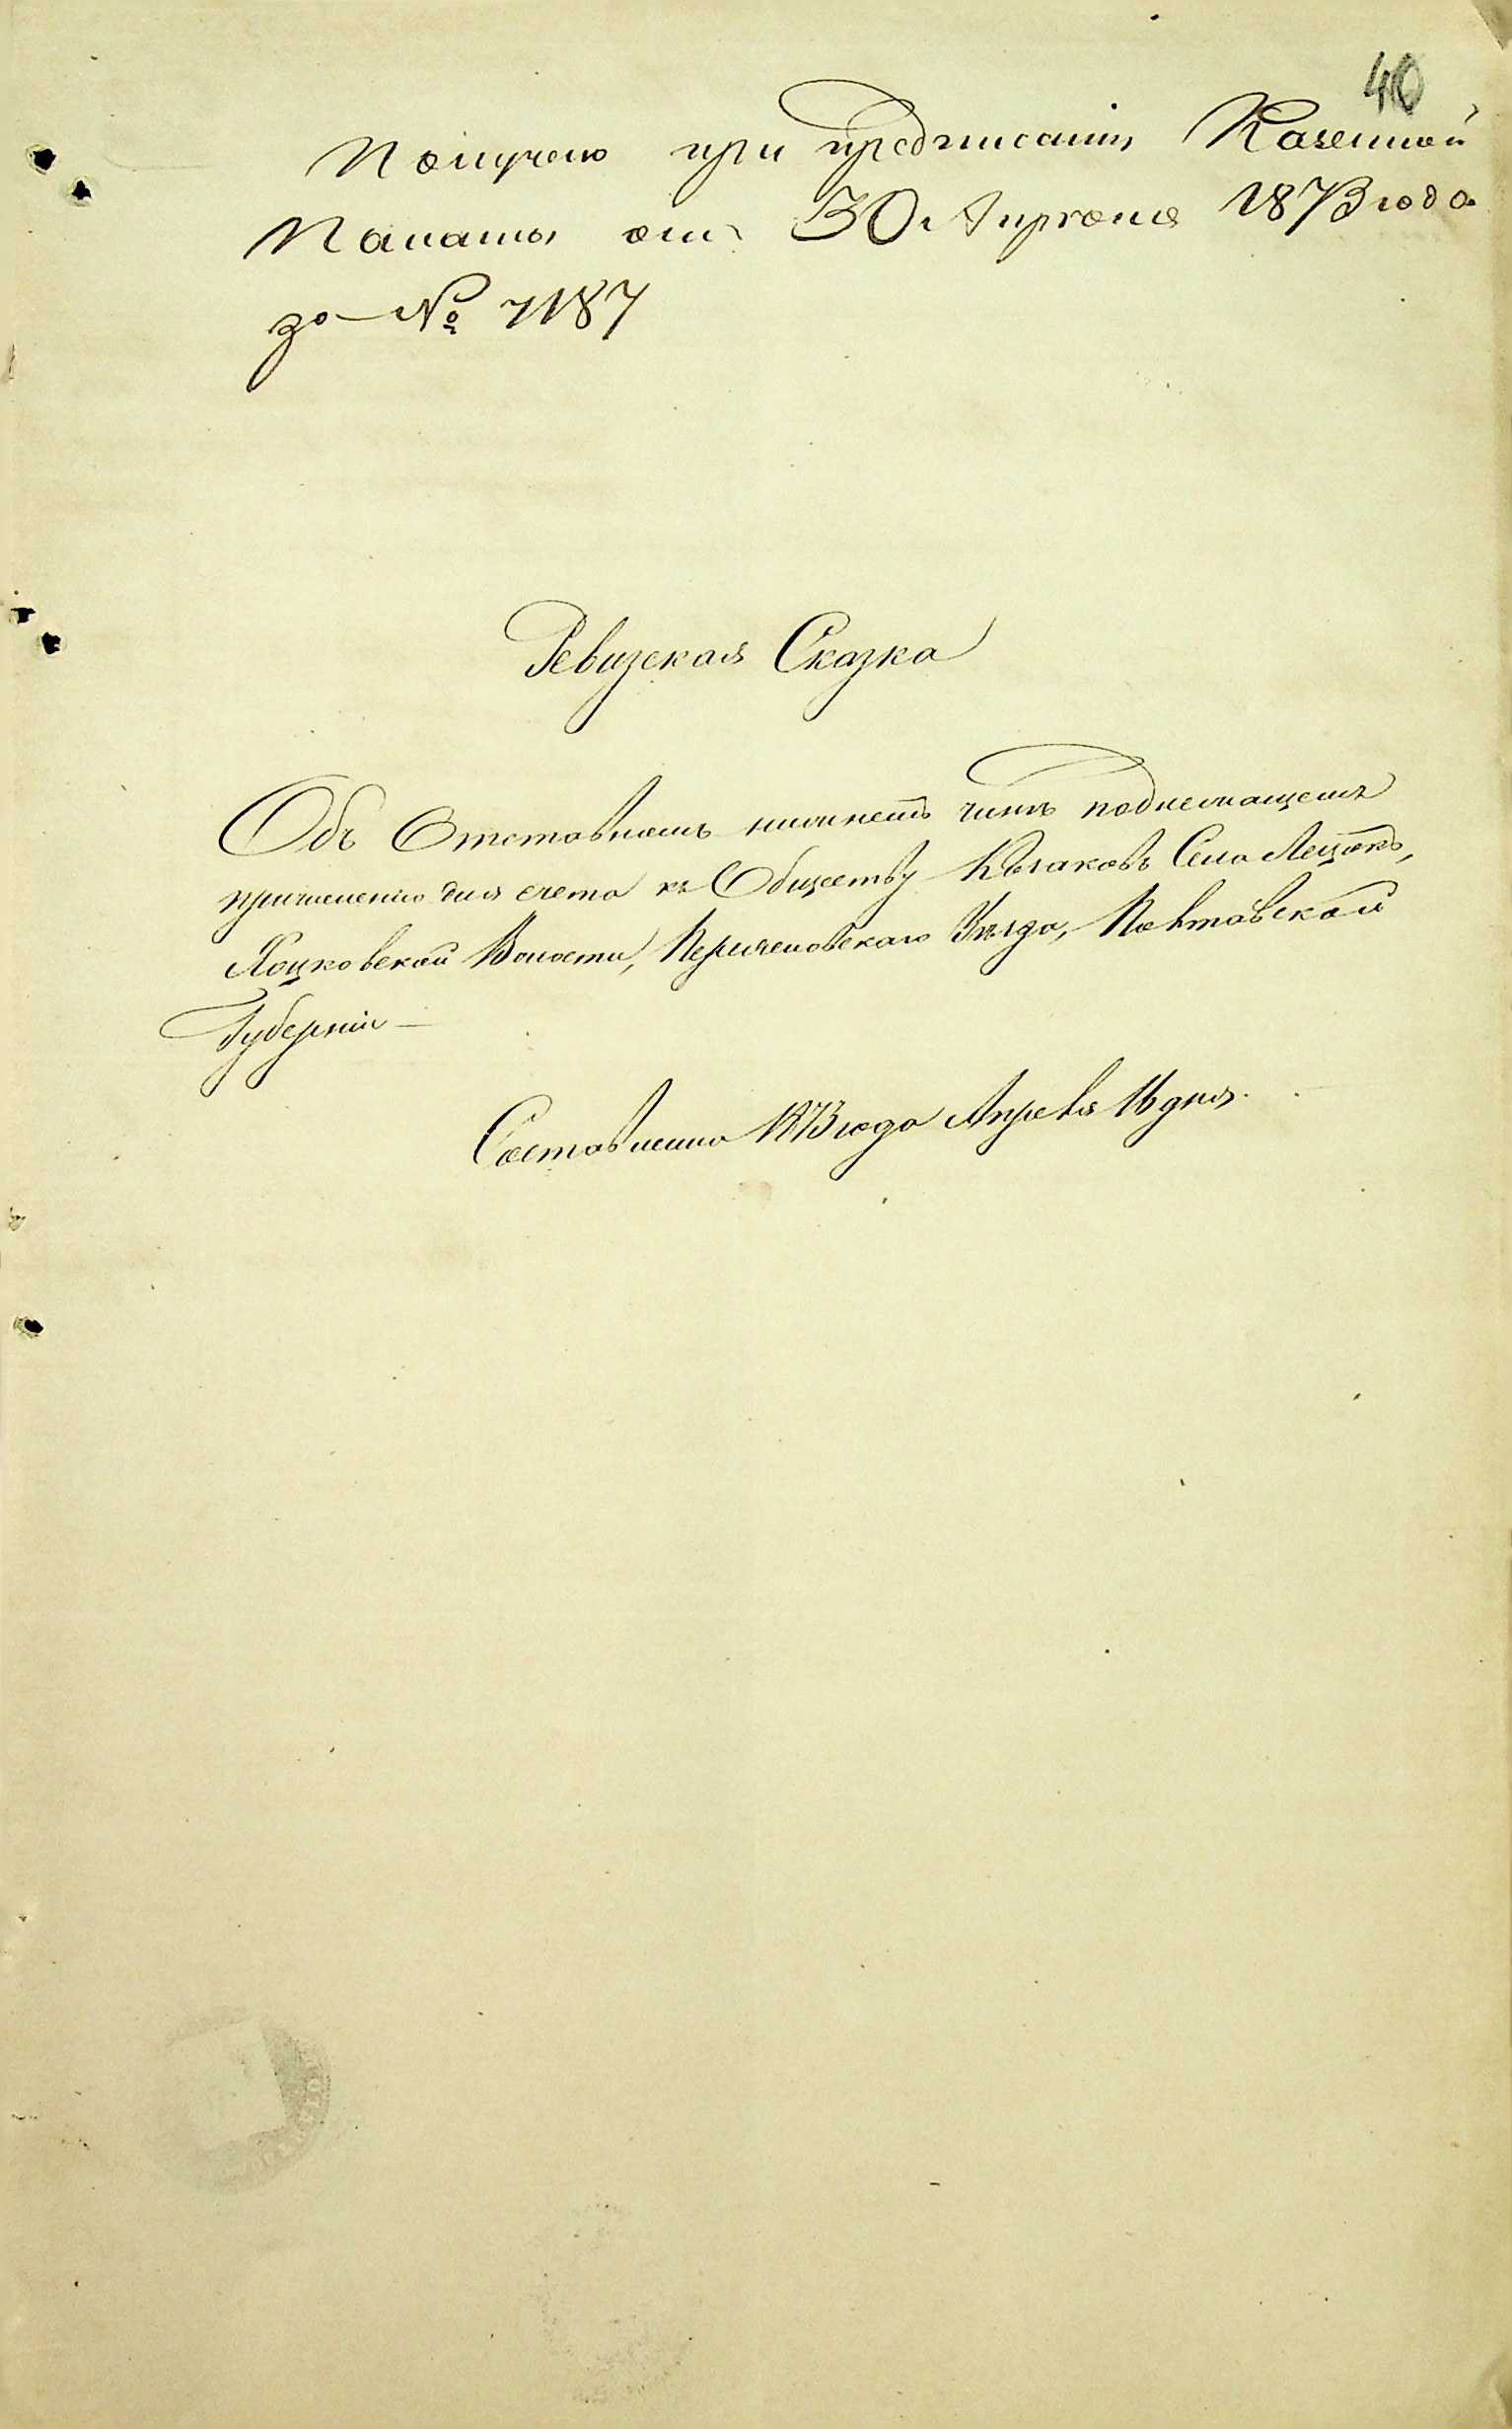 40
Получено при предписаніи Казенной
Палаты отъ 30 Апреля 1873 года
за № 7187
Ревизская Сказка
Объ Отставномъ нижнемъ чинѣ подлежащемъ
причисленію для счета къ Обществу Козаковъ Села
Хоцковской Волости, Переяславскаго Уѣзда, Полтавской
Губерніи —
Составлена 1873 года Апреля 16 дня.